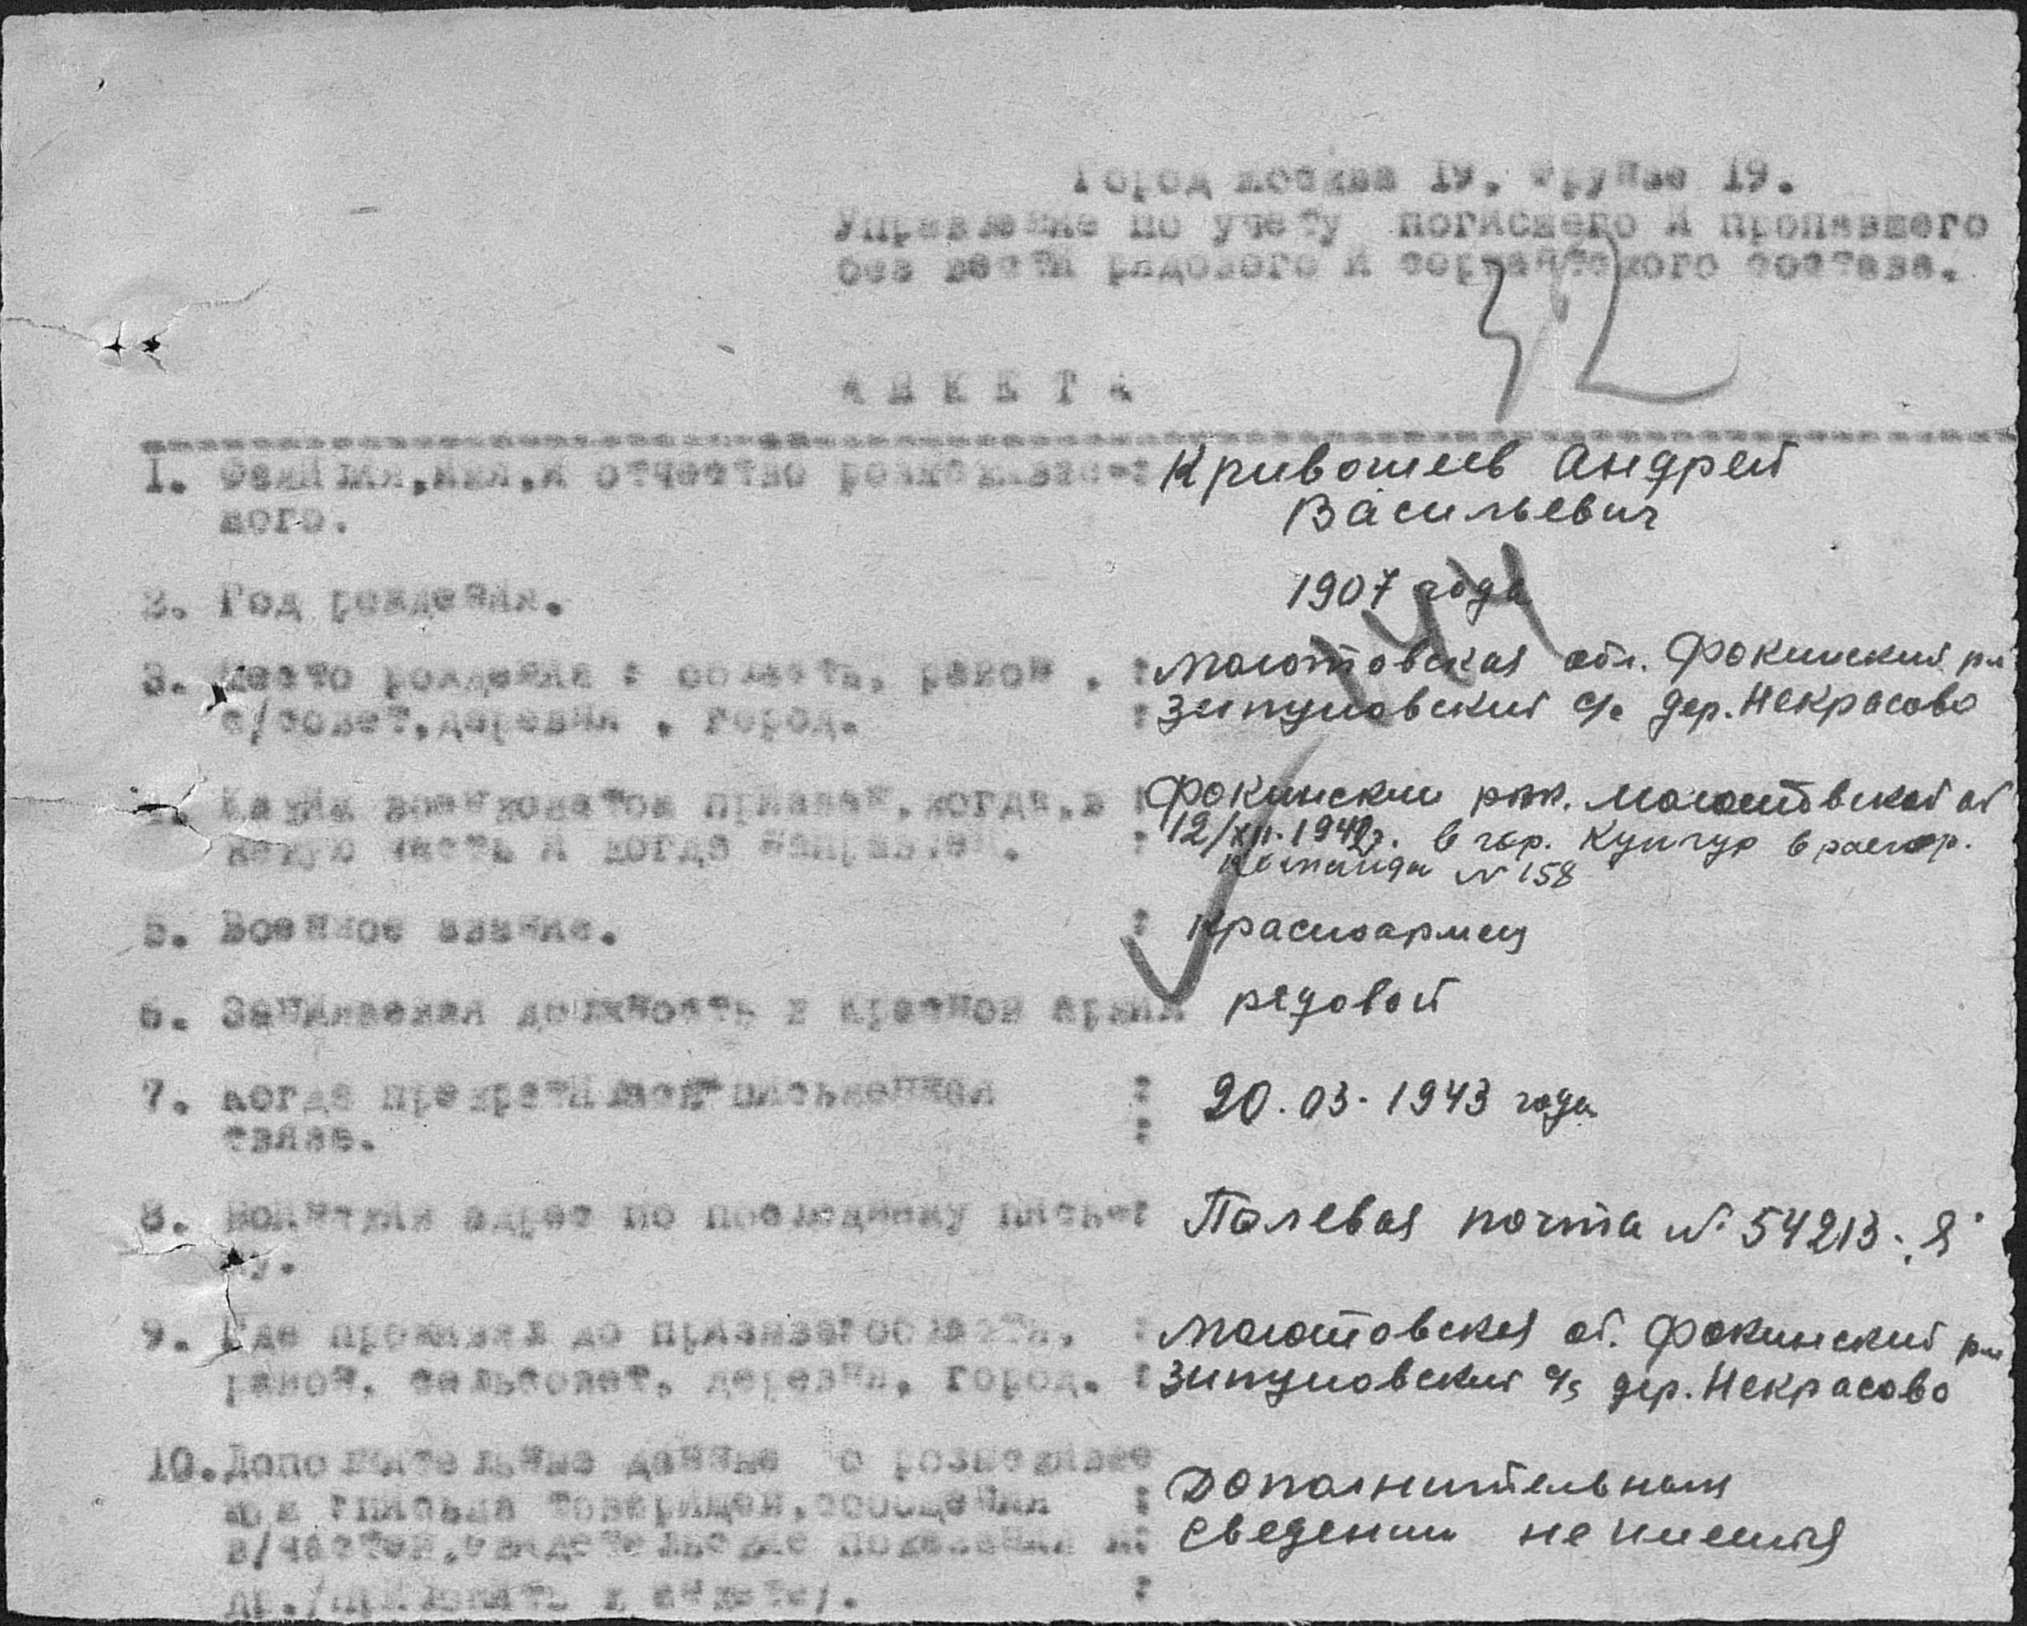 Город Москва 19, Фрунзе 19.
Управление по учету погибшего и пропавшего
без вести рядового и сержантского состава.
АНКЕТА
1. Фамилия, имя, и отчество разыскивае-: Кривошеев Андрей
мого. Васильевич
2. Год рождения. 1907 года
3. Место рождения : область, район , : Молотовская обл. Фокинский рн
с/совет, деревня , город. : Зипуновский с/с дер. Некрасово
4. Каким военкоматом призван, когда, в Фокинским рвк. Молотовской об
какую часть и когда направлен. : 12/XII-1942г. в гор. Кунгур в распор.
Команда N 158
5. Военное звание. : Красноармец
6. Занимаемая должность в Красной армии рядовой
7. Когда прекратилась письменная : 20.03.1943 года
связь. :
8. адрес по последнему пись-: Полевая почта N 54213-Я
му.
9. Где проживал до призыва: область, : Молотовская об. Фокинский рн
район, сельсовет, деревня, город. : Зипуновский с/с дер. Некрасово
10. Дополнительные данные о разыскивае
мом письма товарищей, сообщения : Дополнительных
в/частей, свидетельские показания и: сведений не имеется
др./приложить к анкете/. :